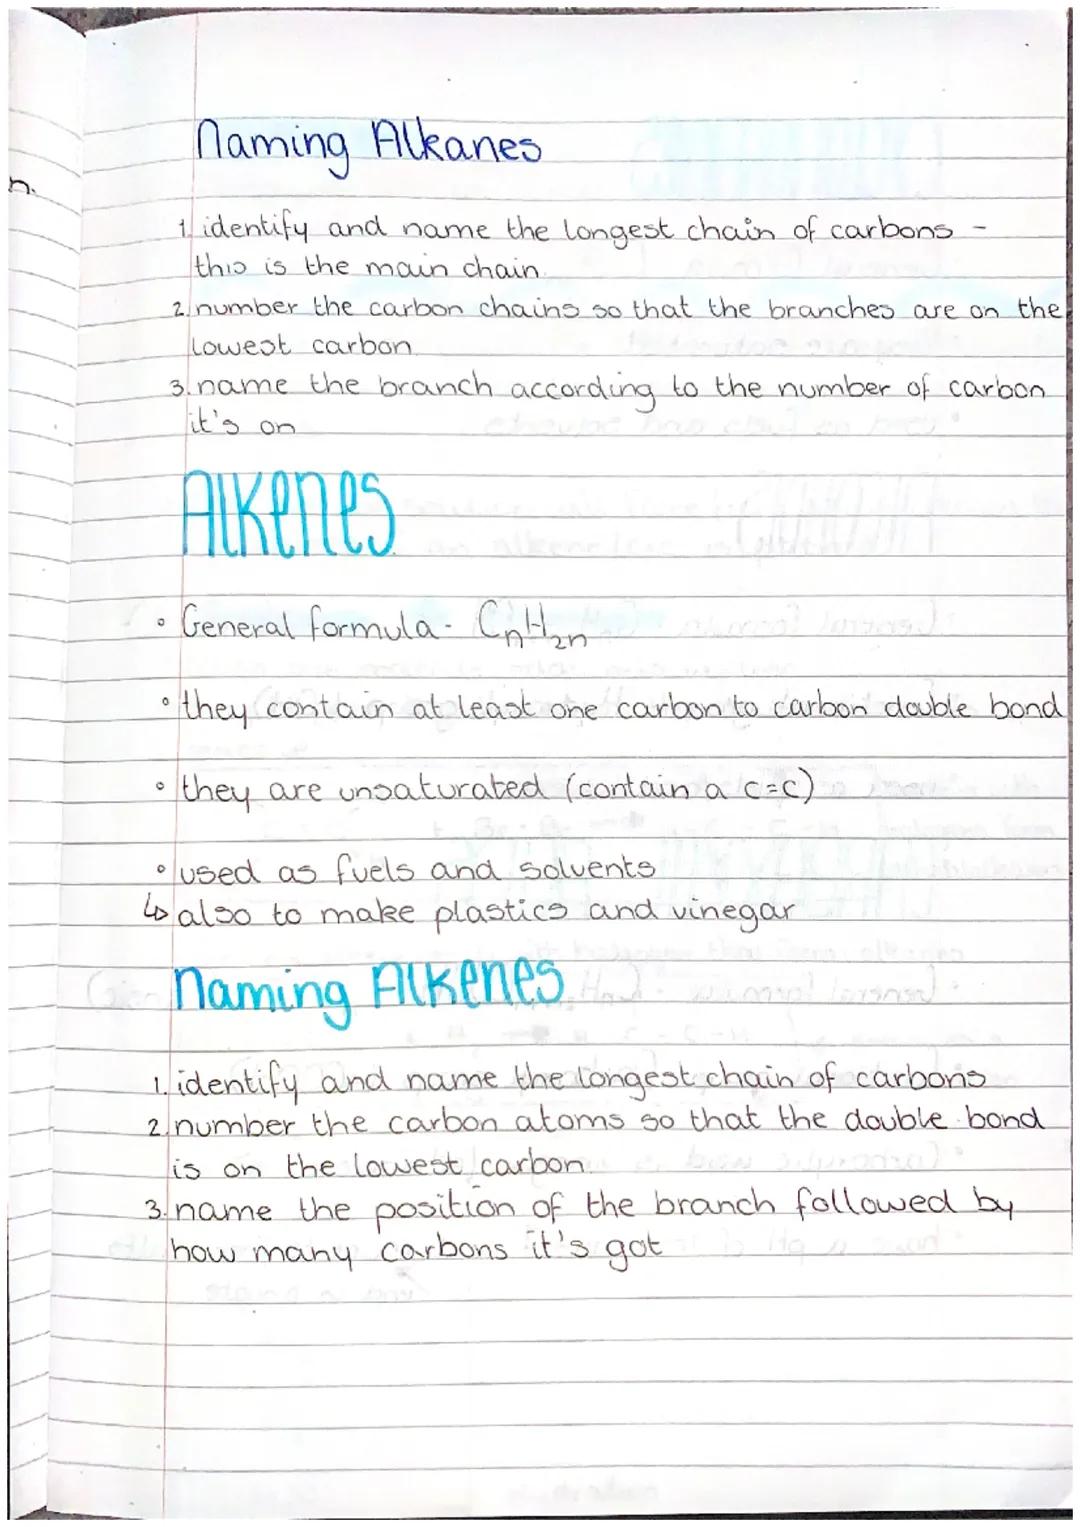 n.
Naming Alkanes
1. identify and name the longest chain of carbons -
this is the main chain.
2. number the carbon chains so that the branches are on the
lowest carbon.
3. name the branch according to the number of carbon
it's on
Alkenes
• General formula - CₙH₂ₙ
• they contain at least one carbon to carbon double bond
• they are unsaturated (contain a c=c)
• used as fuels and solvents
↳ also to make plastics and vinegar
Naming Alkenes
1. identify and name the longest chain of carbons
2. number the carbon atoms so that the double bond
is on the lowest carbon.
3. name the position of the branch followed by
how many carbons it's got